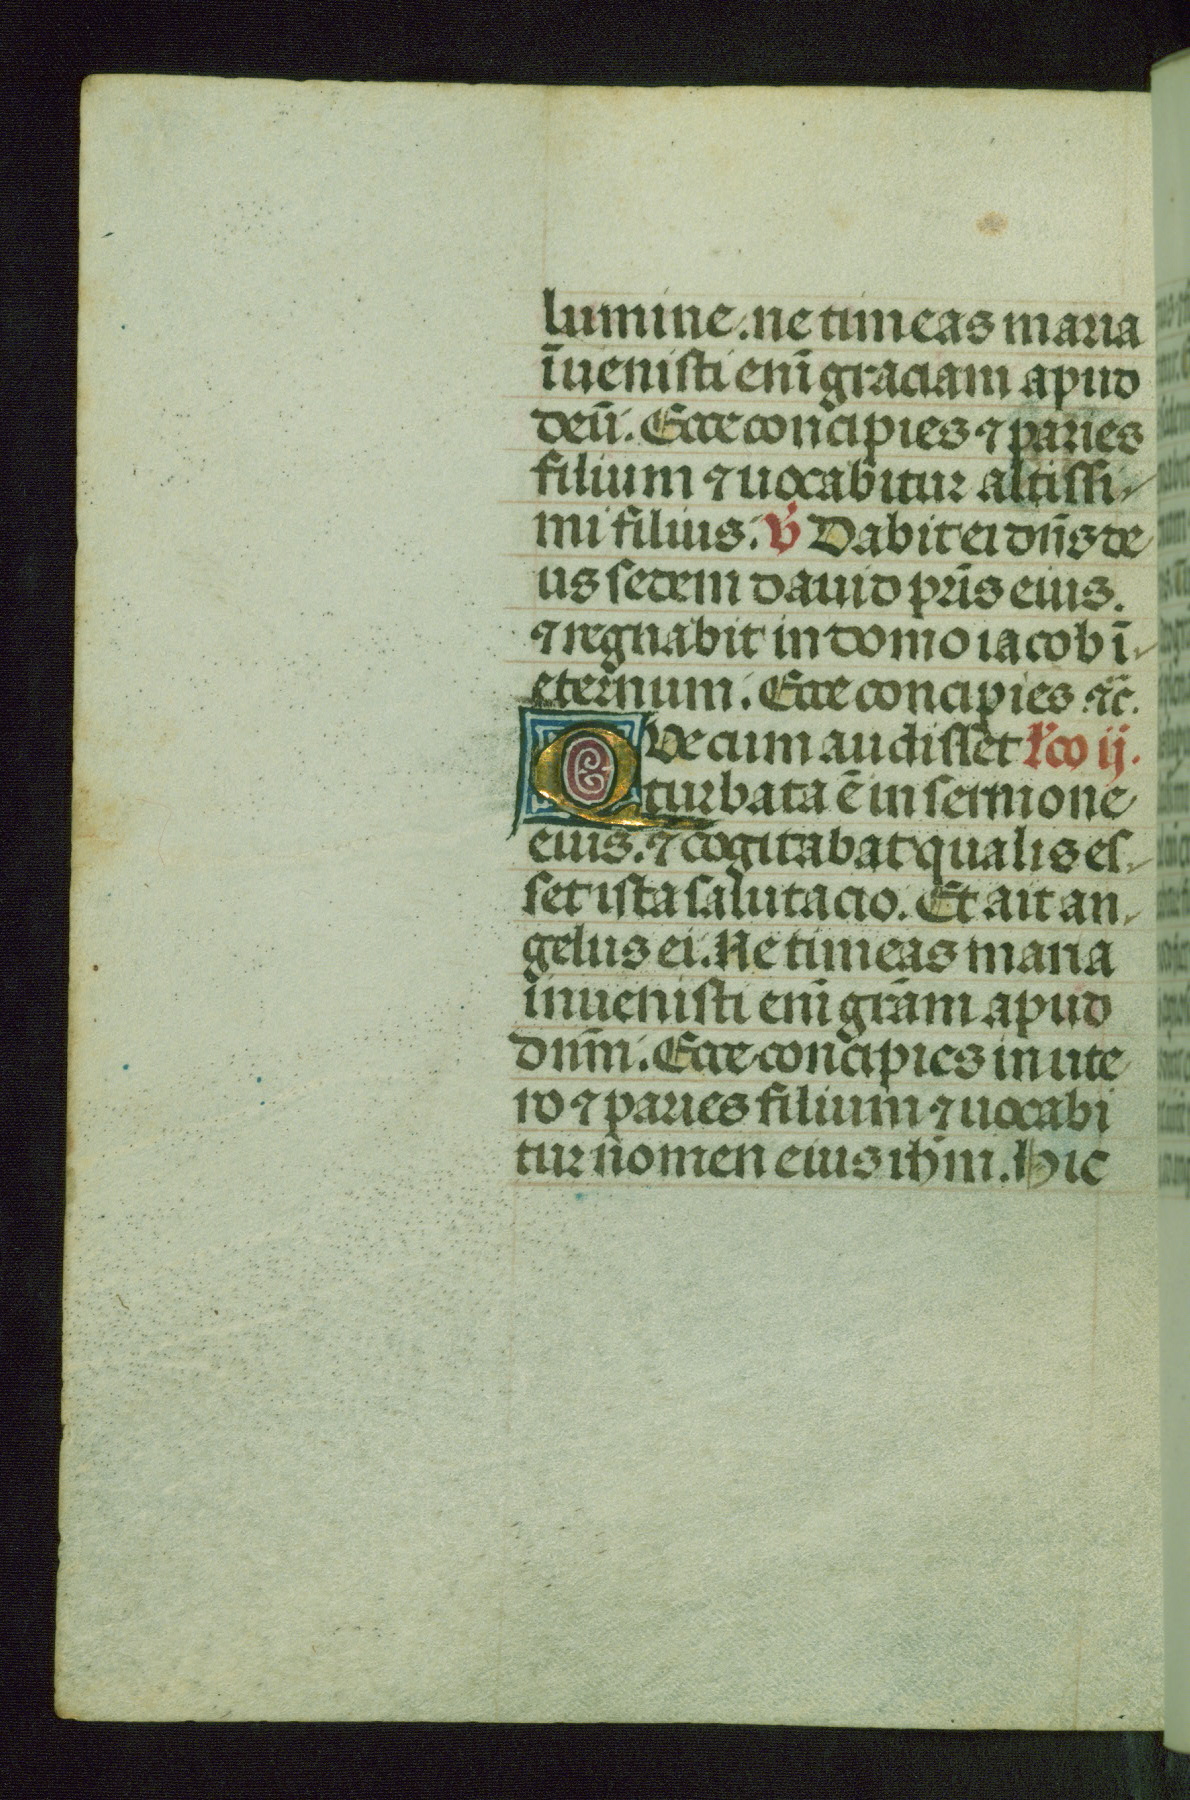 lumine. ne timeas maria
īuenisti enī graciam apud
deū. Ecce concipies ⁊ paries
filium ⁊ uocabitur altissi-
mi filius. V̄ Dabit ei dn̄s de
us sedem dauid pr̄is eius.
⁊ regnabit in domo iacob ī-
eternum. Ecce concipies ⁊c̄.
Que cum audisset lc̄o ij.
turbata ē in sermone
eius. ⁊ cogitabat qualis es-
set ista salutacio. Et ait an-
gelus ei. Ne timeas maria
inuenisti enī grām apud
dnm̄. Ecce concipies in ute
ro ⁊ paries filium ⁊ uocabi
tur nomen eius ihm̄. Hic